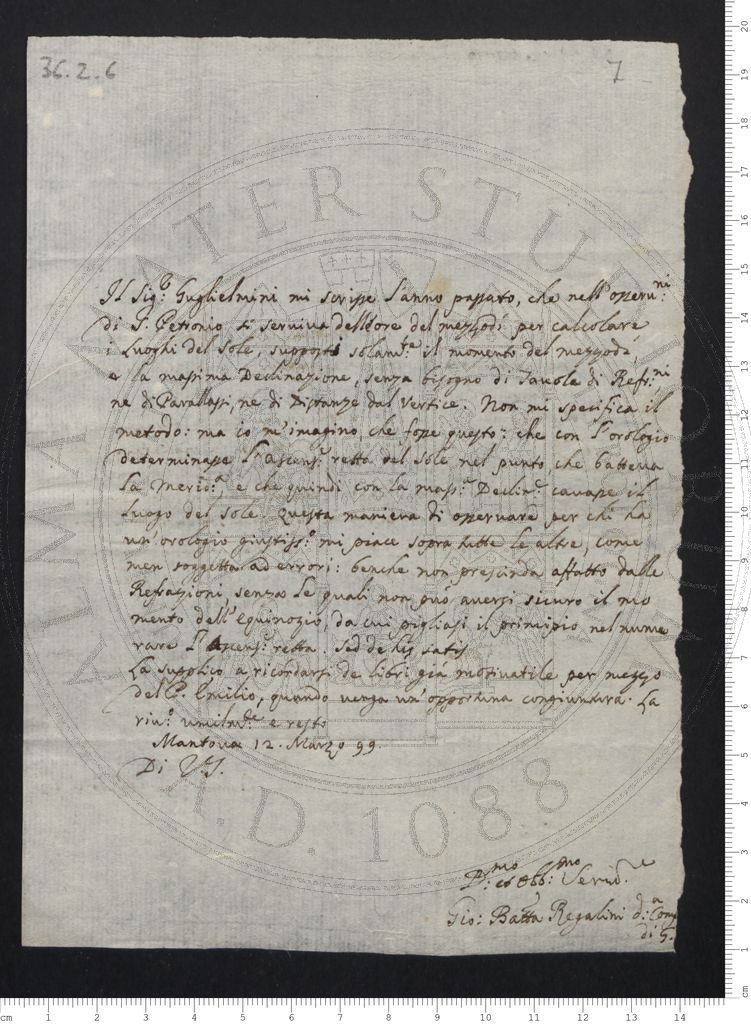 36.2.6
7
Il Sig.r Guglielmini mi scrisse l'anno passato, che nell'operni:
di S. Petronio si serviva dell'ore del mezzodì per calcolare
i luoghi del Sole, supposti solam.te il momento del mezzodì,
e la massima Declinazione, senza bisogno di Tavole di Refr.ni
ne di Parallassi, ne di Distanze dal Vertice. Non mi specifica il
metodo: ma io m'imagino che fosse questo: che con l'orologio
determinasse l'Ascens.e retta del Sole nel punto che batteva
la Merid.a e che quindi con la mass.a Declin.e cavasse il
luogo del Sole. Questa maniera di operuare per chi ha
un'orologio giustiss.o mi piace sopra tutte le altre, come
men soggetta ad errori: benche non prescinda affatto dalle
Refrazioni, senza le quali non può aversi sicuro il mo
mento dell'Equinozio, da cui pigliasi il principio nel nume
rare l'Ascens.e retta. Sed de his satis
La supplico a ricordarsi de libri già motivatile per mezzo
del P. Emilio, quando venga un'opportuna congiuntura. La
riu.o umilm.te e resto
Mantova 12. Marzo 99.
Di V.S.
D.mo et Obb.mo Servid.re
Gio: Batta Regalini d.a Comp
di G.
ALMA MATER STUDIORUM
A.D. 1088
cm 1 2 3 4 5 6 7 8 9 10 11 12 13 14
cm 1 2 3 4 5 6 7 8 9 10 11 12 13 14 15 16 17 18 19 20